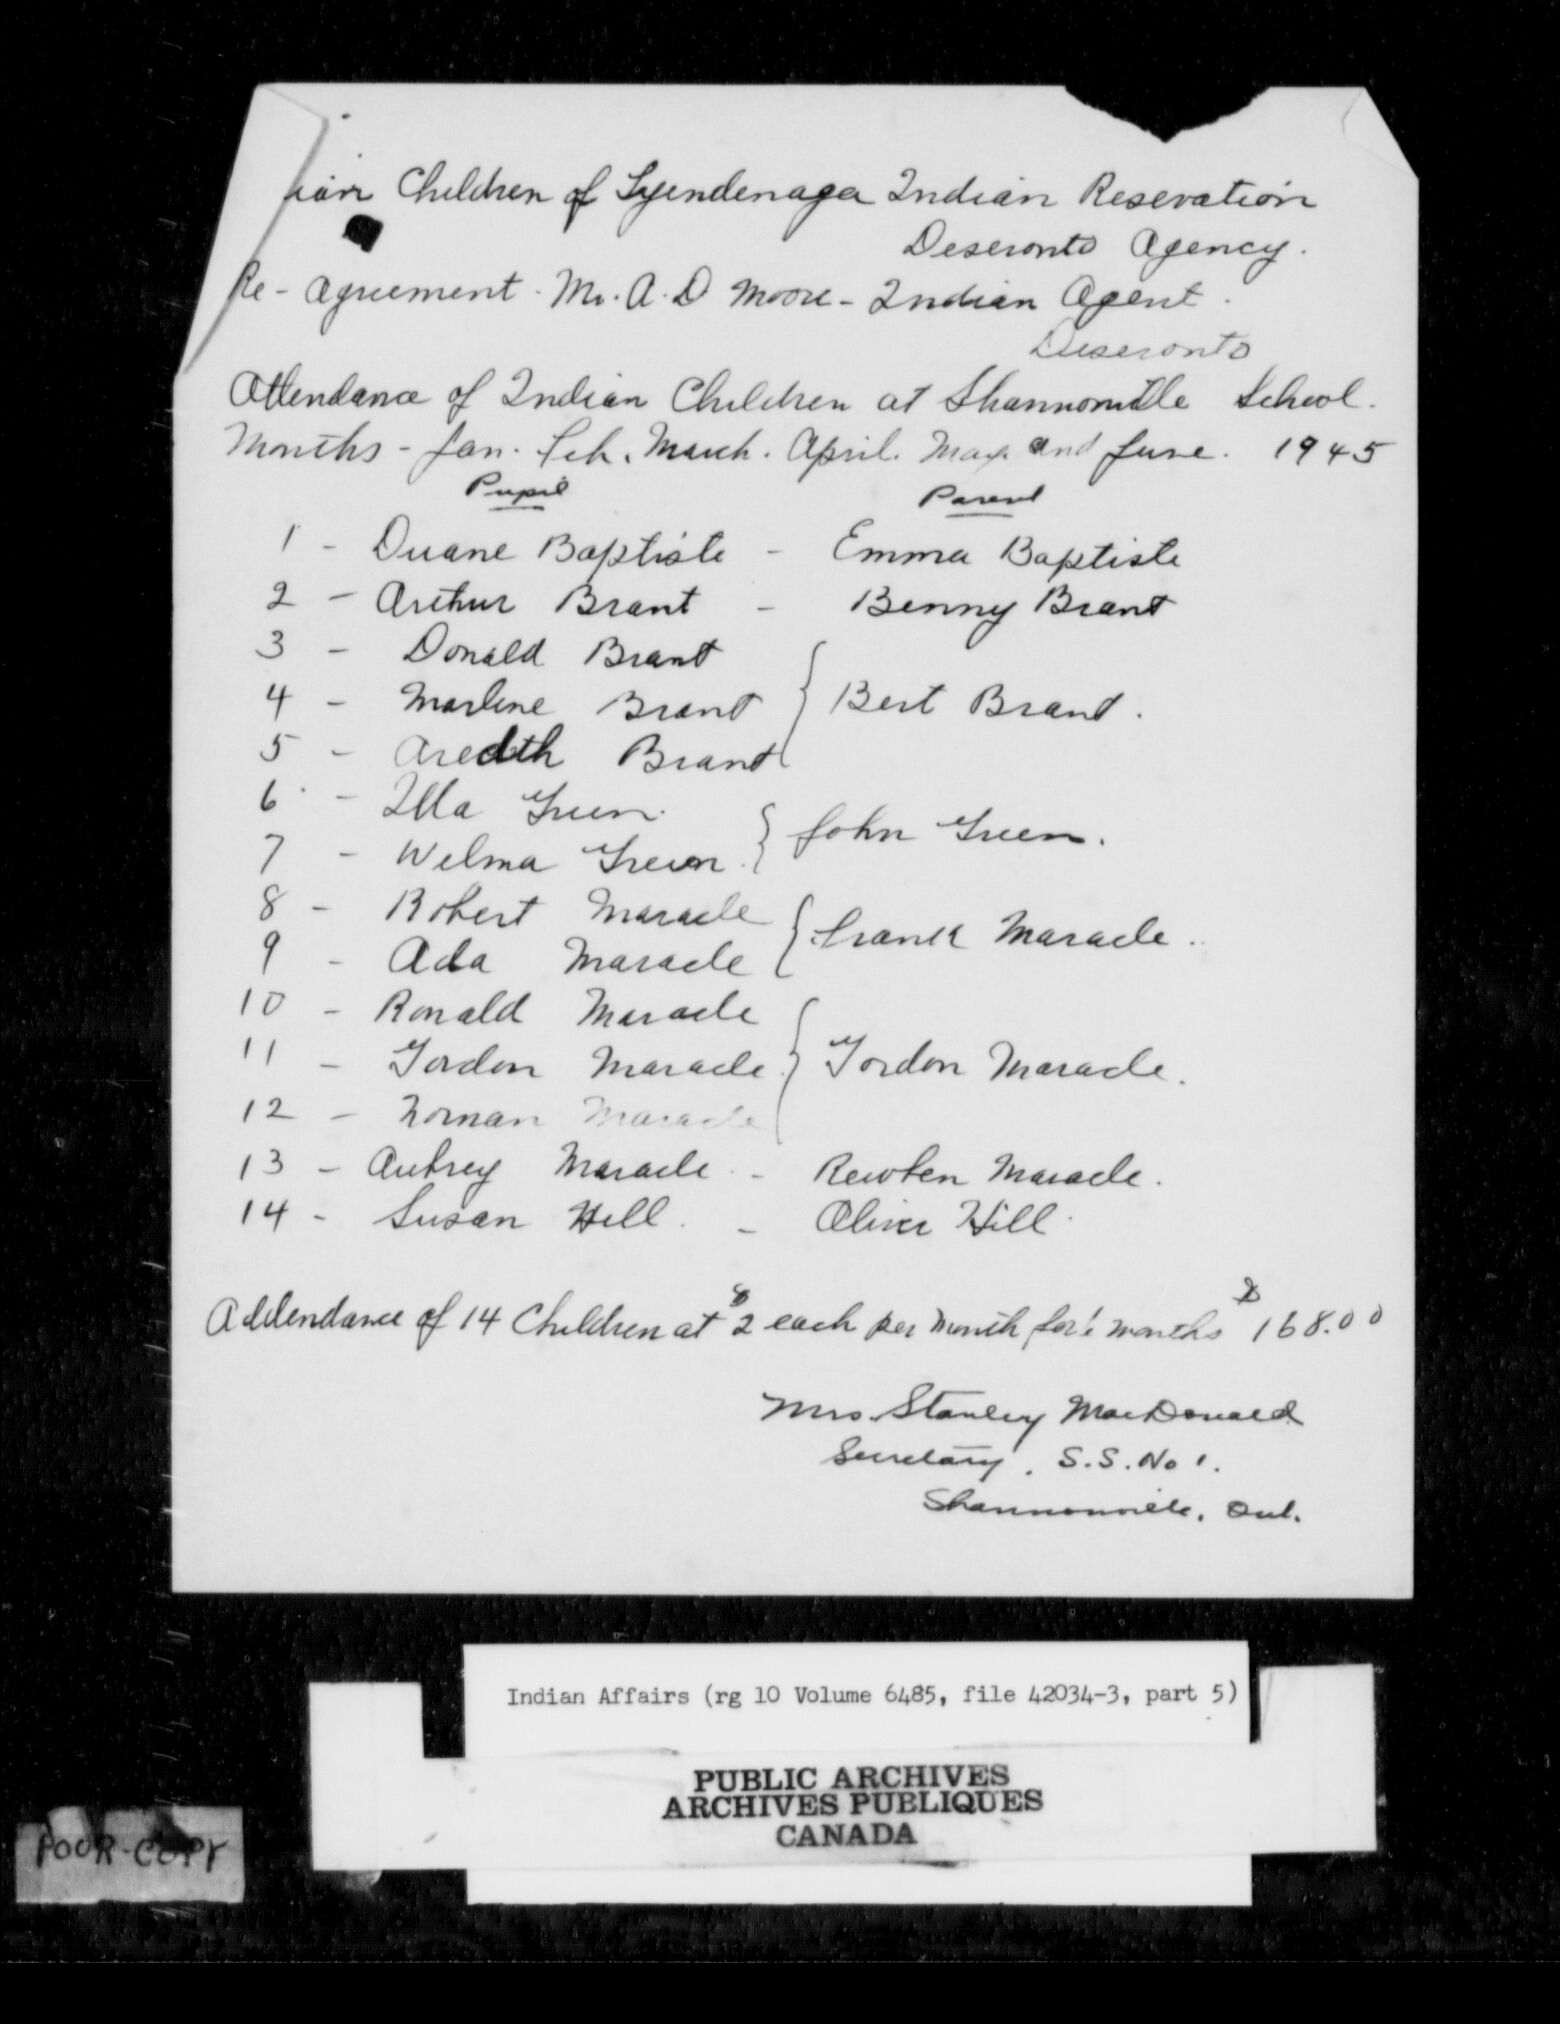 ian Children of Tyendenaga Indian Resevation
Deseronto Agency.
Re - Agreement - Mr. A. D Moore - Indian Agent -
Deseronto
Attendance of Indian Children at Shannonville School.
Months - Jan. Feb. March. April. May and June. 1945
Pupil Parent
1 - Duane Baptiste - Emma Baptiste
2 - Arthur Brant - Benny Brant
3 - Donald Brant
4 - Marlene Brant } Bert Brant.
5 - Aredth Brant
6 - Illa Green.
7 - Wilma Green. } John Green.
8 - Robert Maracle
9 - Ada Maracle { Frank Maracle.
10 - Ronald Maracle
11 - Gordon Maracle } Gordon Maracle.
12 - Norman Maracle
13 - Aubrey Maracle - Rewben Maracle.
14 - Susan Hill. - Oliver Hill.
Addendance of 14 Children at $2 each per month for 6 months $168.00
Mrs. Stanley MacDonald
Secretary. S.S. No 1.
Shannonville, Ont.
Indian Affairs (rg 10 Volume 6485, file 42034-3, part 5)
PUBLIC ARCHIVES
ARCHIVES PUBLIQUES
CANADA
POOR-COPY